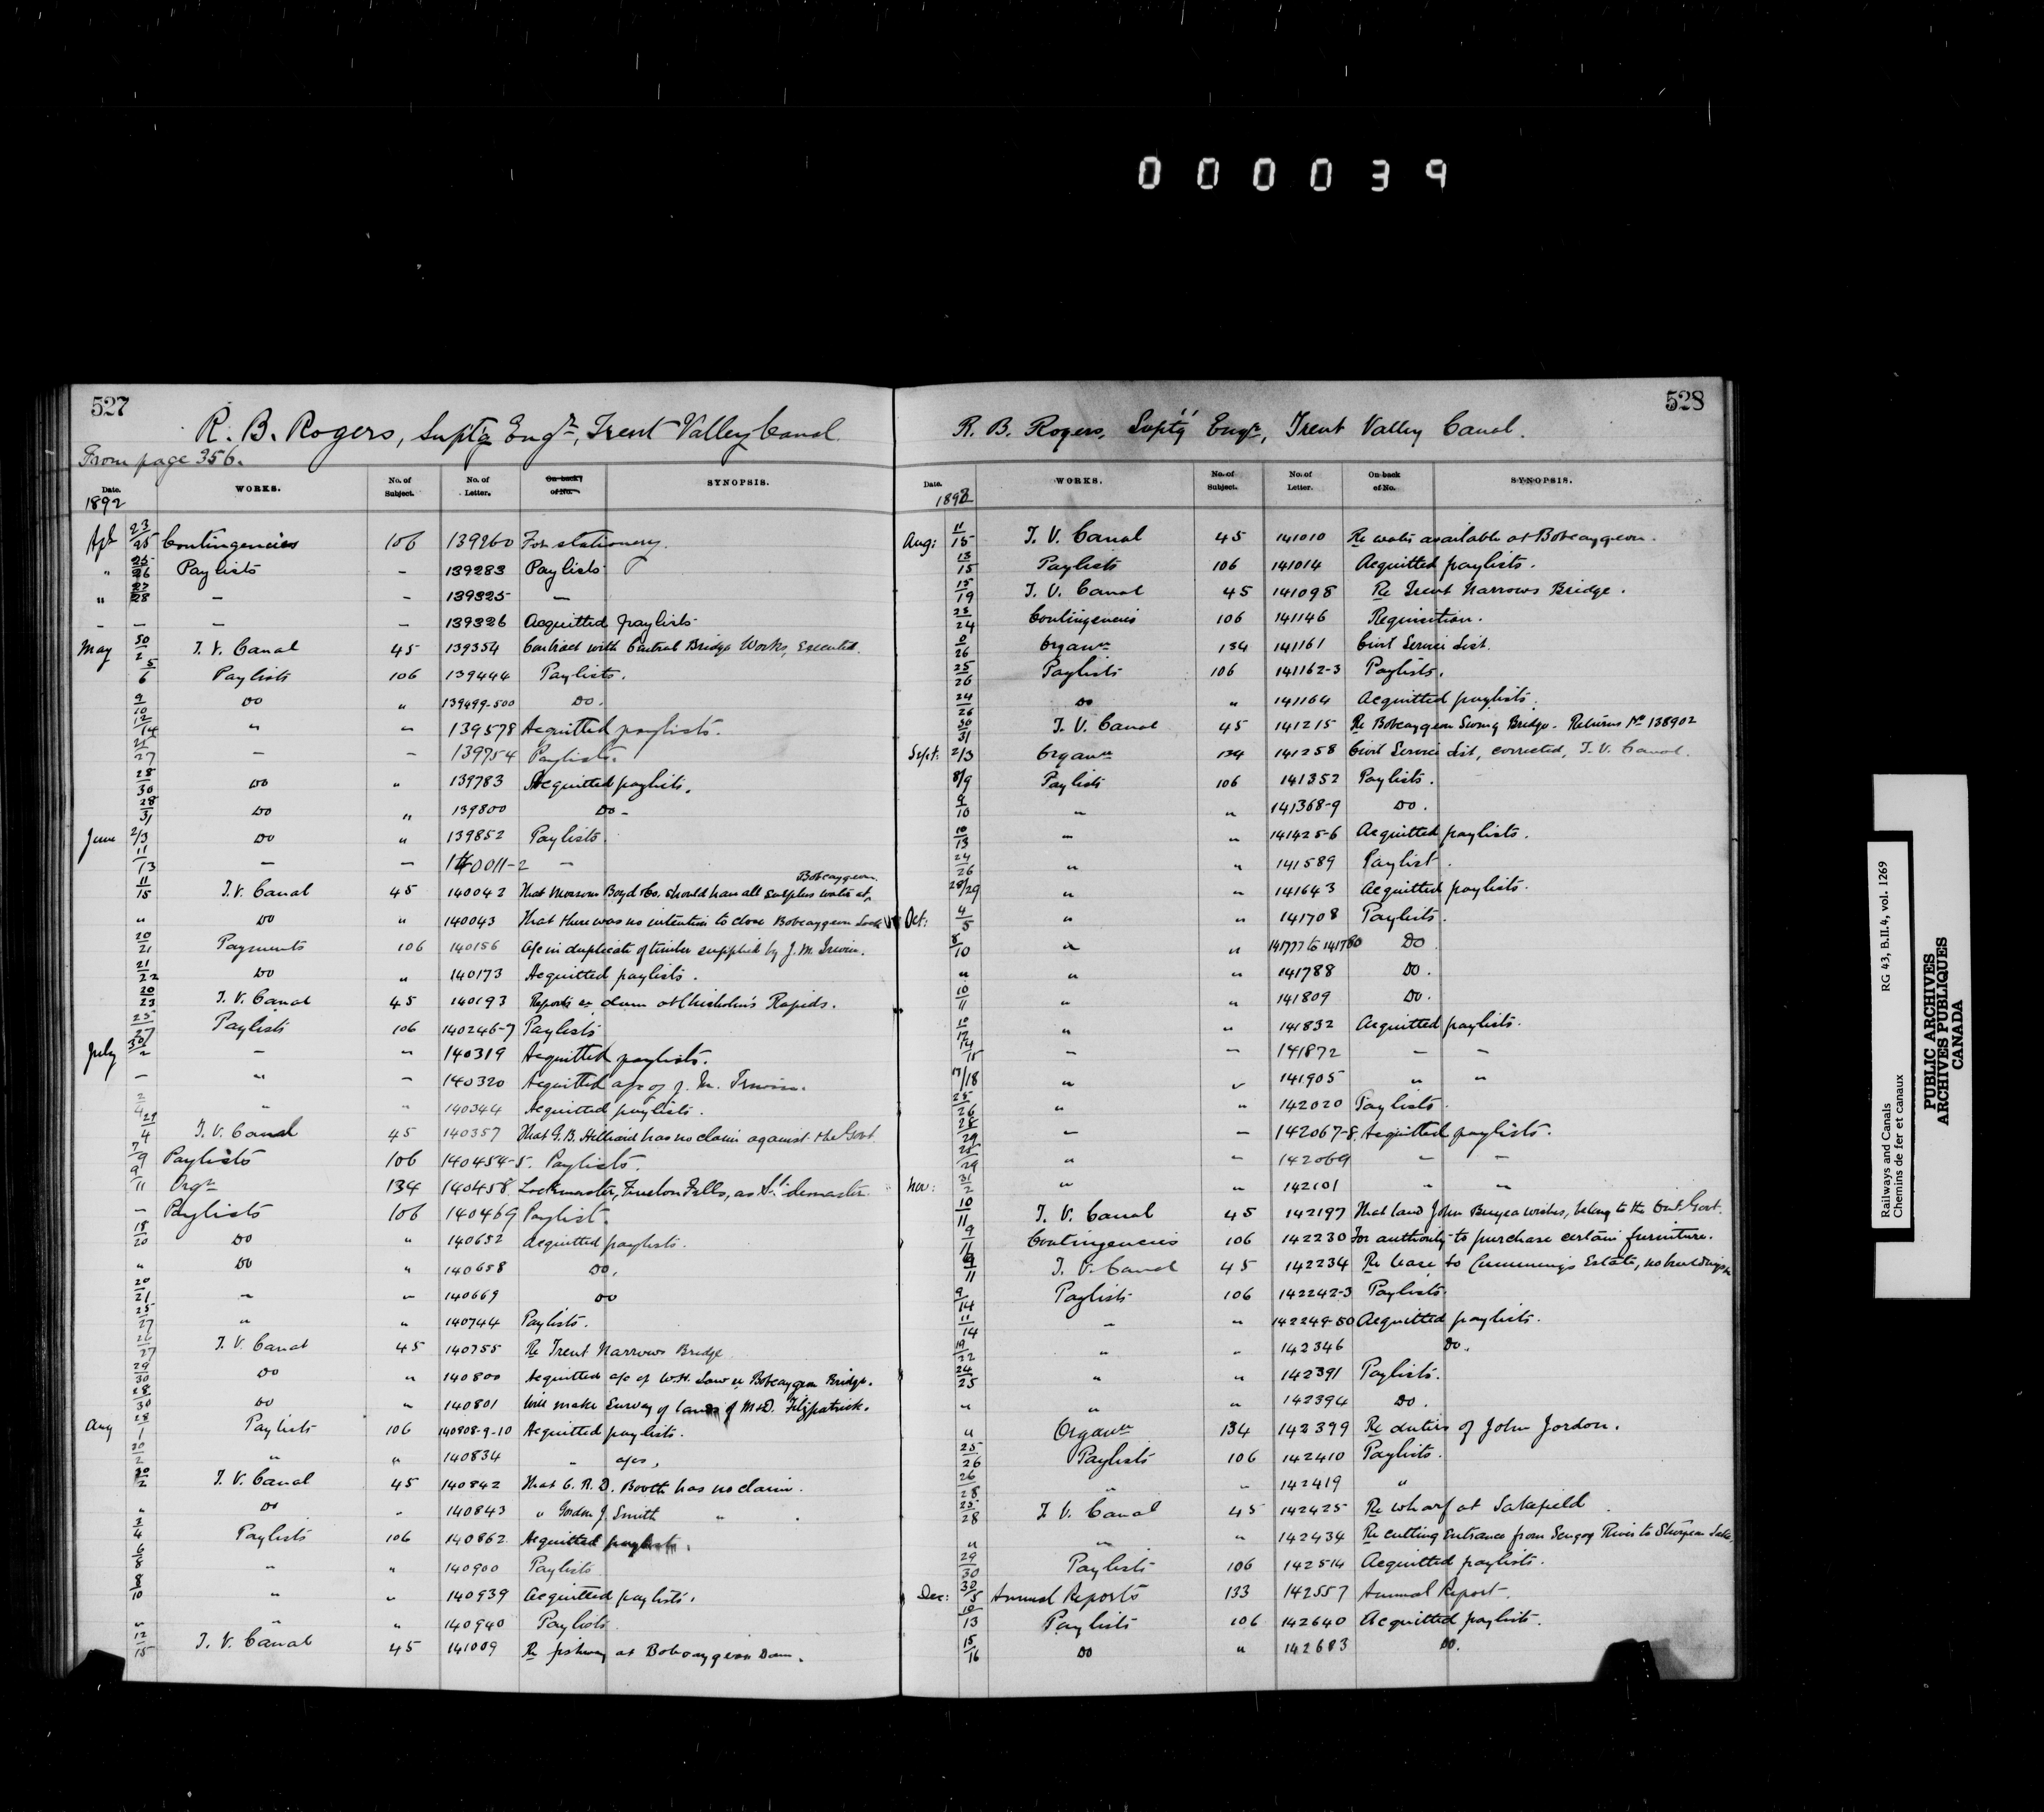 000039
527
R. B. Rogers, Suptg Engr, Trent Valley Canal
From page 356.
Date. WORKS. No. of Subject. No. of Letter. On back of No. SYNOPSIS.
1892
Apl 23/25 Contingencies 106 139260 For stationery.
" 25/26 Paylists – 139283 Paylists
" 27/28 – 139325 –
– – – 139326 Acquitted paylists
May 30/2 T. V. Canal 45 139354 Contract with Central Bridge Works, Executed.
5/6 Paylists 106 139444 Paylists.
9/10 Do " 139499-500 Do.
12/14 " " 139578 Acquitted paylists.
27 – – 139754 Paylists.
28/30 Do " 139783 Acquitted paylists.
28/31 Do " 139800 Do –
June 2/3 Do " 139852 Paylists
11/13 – – 140011-2 –
11/15 T. V. Canal 45 140042 That Mossom Boyd & Co. should have all surplus water at Bobcaygeon.
" Do " 140043 That there was no intention to close Bobcaygeon Lock
20/21 Payments 106 140156 A/c in duplicate of timber supplied by J. M. Irwin.
21/22 Do " 140173 Acquitted paylists.
20/23 T. V. Canal 45 140193 Reports re dam at Chisholm's Rapids.
25/27 Paylists 106 140246-7 Paylists
July 30/2 – " 140319 Acquitted paylists.
– " – 140320 Acquitted a/c of J. M. Irwin.
2/4 " " 140344 Acquitted paylists.
29/4 T. V. Canal 45 140357 That G. B. Hilliard has no claim against the Govt.
7/9 Paylists 106 140454-5. Paylists.
9/11 Orgn 134 140458 Lockmaster, Fenelon Falls, as
– Paylists 106 140469 Paylist.
18/20 Do " 140652 Acquitted paylists.
" Do " 140658 Do.
20/21 – " 140669 Do
25/27 " " 140744 Paylists.
26/27 T. V. Canal 45 140755 Re Trent Narrows Bridge
29/30 Do " 140800 Acquitted a/c of W. H. Law re Bobcaygeon Bridge.
28/30 Do " 140801 Will make survey of lands of M & D. Fitzpatrick.
Aug 28/1 Paylists 106 140808-9-10 Acquitted paylists.
20/2 " " 140834 " a/cs.
30/2 T. V. Canal 45 140842 That C. R. D. Booth has no claim.
" Do " 140843 " Gordon J. Smith "
3/4 Paylists 106 140862 Acquitted paylists.
6/8 " " 140900 Paylists
8/10 " " 140939 Acquitted paylists.
" " " 140940 Paylists
12/15 T. V. Canal 45 141009 Re fishway at Bobcaygeon Dam.
528
R. B. Rogers, Suptg Engr, Trent Valley Canal.
Date. WORKS. No. of Subject. No. of Letter. On back of No. SYNOPSIS.
1892
Aug: 11/15 T. V. Canal 45 141010 Re water available at Bobcaygeon.
13/15 Paylists 106 141014 Acquitted paylists.
15/19 T. V. Canal 45 141098 Re Trent Narrows Bridge.
23/24 Contingencies 106 141146 Requisition.
0/26 Organn 134 141161 Civil Service List.
25/26 Paylists 106 141162-3 Paylists.
24/26 Do " 141164 Acquitted paylists.
30/31 T. V. Canal 45 141215 Re Bobcaygeon Swing Bridge. Returns No 138902
Sept: 2/3 Organn 134 141258 Civil Service List, corrected, T. V. Canal.
8/9 Paylists 106 141352 Paylists.
9/10 " " 141368-9 Do.
10/13 " " 141425-6 Acquitted paylists.
24/26 " " 141589 Paylist.
28/29 " " 141643 Acquitted paylists.
Oct: 4/5 " " 141708 Paylists.
8/10 " " 141777 to 141780 Do
" " " 141788 Do.
10/11 " " 141809 Do.
10/12 " " 141832 Acquitted paylists.
14/15 – – 141872 – –
17/18 " " 141905 " "
25/26 " " 142020 Paylists.
28/29 – – 142067-8. Acquitted paylists.
28/29 " " 142069 – –
Nov: 31/2 " " 142101 " "
10/11 T. V. Canal 45 142197 That land John wishes, belong to the Ont. Govt.
9/11 Contingencies 106 142230 For authority to purchase certain furniture.
9/11 T. V. Canal 45 142234 Re lease to Cummings Estate, no buildings
9/14 Paylists 106 142242-3 Paylists.
11/14 – " 142249-50 Acquitted paylists.
19/22 " " 142346 Do.
24/25 " " 142391 Paylists.
" " 142394 Do.
" Organn 134 142399 Re duties of John Jordon.
25/26 Paylists 106 142410 Paylists.
26/28 " " 142419 "
25/28 T. V. Canal 45 142425 Re wharf at Lakefield
" " " 142434 Re cutting entrance from Scugog River to Sturgeon Lake.
29/30 Paylists 106 142514 Acquitted paylists.
Dec: 30/5 Annual Reports 133 142557 Annual Report.
10/13 Paylists 106 142640 Acquitted paylists.
15/16 Do " 142683 Do.
Railways and Canals RG 43, B.II.4, vol. 1269
Chemins de fer et canaux
PUBLIC ARCHIVES
ARCHIVES PUBLIQUES
CANADA